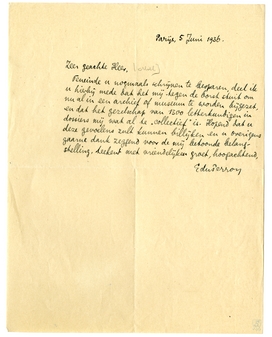 Parijs 5 Juni 1936.
Zeer geachte Heer,
Teneinde u nogmaals schrijven te besparen, deel ik
u hierbij mede dat het mij tegen de borst stuit om
nu al in een archief of museum te worden bijgezet,
en dat het gezelschap van 1500 letterkundigen in
dossiers mij wat al te "collectief" is. Hopend dat u
deze gevoelens zult kunnen billijken en u overigens
gaarne dank zeggend voor de mij betoonde belang-
stelling, teekent met vriendelijken groet, hoogachtend,
EduPerron